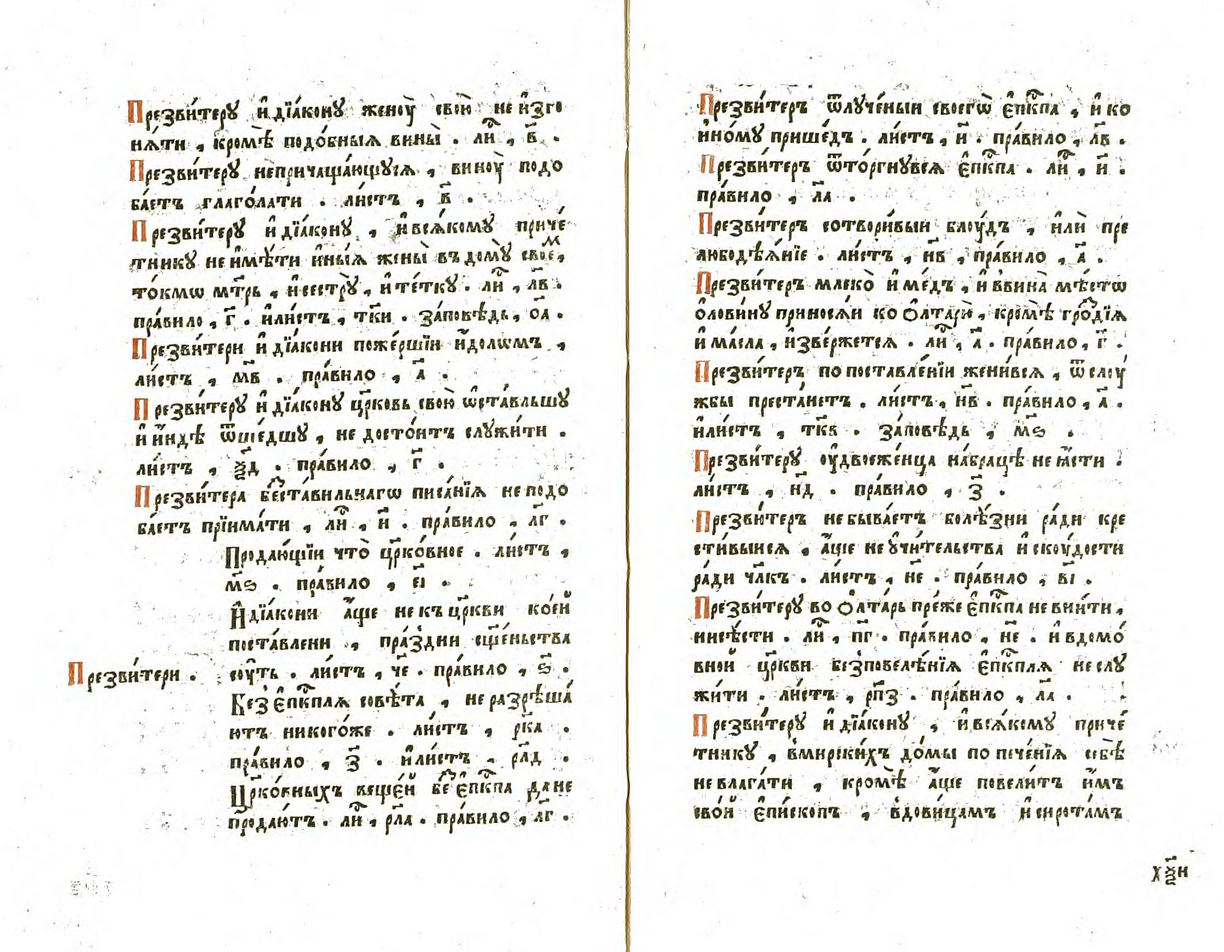 Презви́теру и҆ дїа́кону женоу̀ свою̀ не и҆зго
ня́ти , кромѣ̀ подо́бныѧ вины̀ . ли́ , в҃ .
Презви́теру непричаща́ющуся , виноу̀ подо
ба́етъ глаго́лати . ли́стъ , в҃ .
Презви́теру и҆ дїа́кону , и҆ вся́кому приче́
тнику не и҆мѣ́ти и҆ны́ѧ жены̀ въ дому̀ свое́м ,
то́кмѡ мт҃рь , и҆ сестру̀ , и҆ те́тку . ли́ , лв҃ .
пра́вило , г҃ . и҆ ли́стъ , тк҃и . за́повѣдь , ѻ҃а .
Презви́тери и҆ дїа́кони поже́ршїи и҆́дѡлѡмъ ,
ли́стъ , м҃в . пра́вило , а҃ .
Презви́теру и҆ дїа́кону цр҃ковь свою̀ ѡ҆ста́вльшу
и҆ и҆́ндѣ ѿше́дшу , не досто́итъ служи́ти .
ли́стъ , ѯ҃д . пра́вило , г҃ .
Презви́тера беста́вильнагѡ писа́нїѧ не подо
ба́етъ прїима́ти , ли́ , и҃ . пра́вило , лг҃ .
Продаю́щїи что̀ цр҃ко́вное . ли́стъ ,
м҃ѕ . пра́вило , е҃і .
И҆ дїа́кони а҆́ще не къ цр҃кви ко́ей
поста́влени , пра́здни сщ҃е́ньства
Презви́тери . соу́ть . ли́стъ , ч҃е . пра́вило , ѕ҃ .
Без̾ є҆пкⷭ҇пля совѣ́та , не разрѣша́
ютъ никого́же . ли́стъ , рк҃а .
пра́вило , з҃ . и҆ ли́стъ , рл҃д .
Цр҃ко́вныхъ веще́й бе є҆пкⷭ҇па да не
продаю́тъ . ли́ , рл҃а . пра́вило , лг҃ .
Презви́теръ ѿлуче́ныи своегѡ̀ є҆пкⷭ҇па , и҆ ко
и҆но́му прише́дъ . ли́стъ , и҃ . пра́вило , лв҃ .
Презви́теръ ѿто́ргнувся є҆пкⷭ҇па . ли́ , и҃ .
пра́вило , ла҃ .
Презви́теръ сотвори́выи блоу́дъ , и҆лѝ пре
любодѣѧ́нїе . ли́стъ , н҃в , пра́вило , а҃ .
Презви́теръ млеко̀ и҆ ме́дъ , и҆ в вина̀ мѣ́стѡ
ѻ҆лови́ну принося́и ко ѻ҆лтарю̀ , кромѣ̀ гро́здїѧ
и҆ ма́сла , и҆зве́ржется . ли́ , а҃ . пра́вило , г҃ .
Презви́теръ по поставле́нїи жени́вся , ѿ слоу́
жбы преста́нетъ . ли́стъ , н҃в . пра́вило , а҃ .
и҆ ли́стъ , тк҃в . за́повѣдь , м҃ѕ .
Презви́теру оу҆ двоеже́нца на бра́цѣ не ꙗ҆́сти .
ли́стъ , н҃д . пра́вило , з҃ .
Презви́теръ не быва́етъ болѣ́зни ра́ди кре
сти́выися , а҆́ще не оу҆чи́тельства и҆ скоу́дости
ра́ди чл҃къ . ли́стъ , н҃е . пра́вило , в҃і .
Презви́теру во ѻ҆лта́рь пре́же є҆пкⷭ҇па не вни́ти ,
ни сѣ́сти . ли́ , п҃г . пра́вило , н҃е . и҆ в домо́
вной цр҃кви без̾ повеле́нїѧ є҆пкⷭ҇пля не слу
жи́ти . ли́стъ , рп҃з . пра́вило , ла҃ .
Презви́теру и҆ дїа́кону , и҆ вся́кому приче́
тнику , в мирски́хъ до́мы по пече́нїѧ себѣ̀
не влага́ти , кромѣ̀ а҆́ще повели́тъ и҆̀мъ
сво́й є҆пи́скопъ , вдови́цамъ и҆ сирота́мъ
хѯ҃и